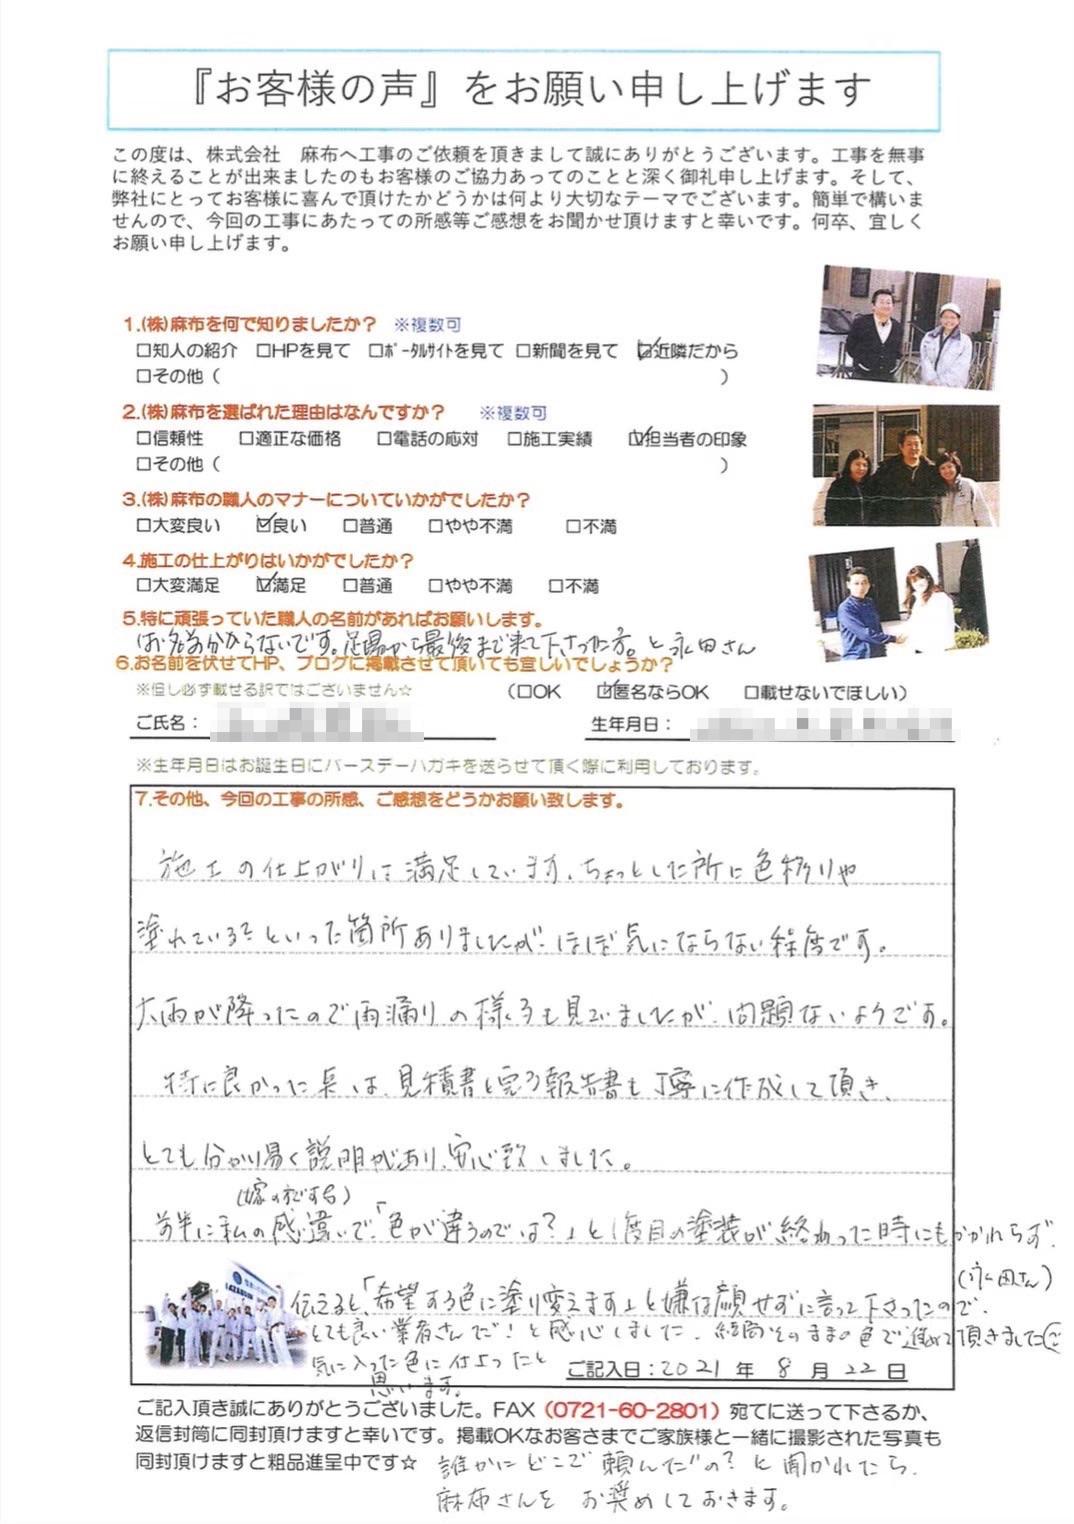 『お客様の声』をお願い申し上げます
この度は、株式会社　麻布へ工事のご依頼を頂きまして誠にありがとうございます。工事を無事
に終えることが出来ましたのもお客様のご協力あってのことと深く御礼申し上げます。そして、
弊社にとってお客様に喜んで頂けたかどうかは何より大切なテーマでございます。簡単で構いま
せんので、今回の工事にあたっての所感等ご感想をお聞かせ頂けますと幸いです。何卒、宜しく
お願い申し上げます。
1.(株)麻布を何で知りましたか？　※複数可
□知人の紹介　□HPを見て　□ﾎﾟｰﾀﾙｻｲﾄを見て　□新聞を見て　☑近隣だから
□その他（　　　　　　　　　　　　　　　　　　　　　）
2.(株)麻布を選ばれた理由はなんですか？　※複数可
□信頼性　□適正な価格　□電話の応対　□施工実績　☑担当者の印象
□その他（　　　　　　　　　　　　　　　　　　　　　）
3.(株)麻布の職人のマナーについていかがでしたか？
□大変良い　☑良い　□普通　□やや不満　□不満
4.施工の仕上がりはいかがでしたか？
□大変満足　☑満足　□普通　□やや不満　□不満
5.特に頑張っていた職人の名前があればお願いします。
お名前分からないです。足場から最後まで来て下さった方。と永田さん
6.お名前を伏せてHP、ブログに掲載させて頂いても宜しいでしょうか？
※但し必ず載せる訳ではございません☆　（□OK　☑匿名ならOK　□載せないでほしい）
ご氏名：　生年月日：
※生年月日はお誕生日にバースデーハガキを送らせて頂く際に利用しております。
7.その他、今回の工事の所感、ご感想をどうかお願い致します。
施工の仕上がりは満足しています。ちょっとした所に色移りや
塗れている?といった箇所ありましたが、ほぼ気にならない程度です。
大雨が降ったので雨漏りの様子も見ていましたが、問題ないようです。
特に良かった点は、見積書と完了報告書も丁寧に作成して頂き、
とても分かり易く説明があり、安心致しました。
(嫁のです)
前半に私の感違いで、「色が違うのでは？」と1度目の塗装が終わった時にもかかわらず、
(永田さん)
伝えると「希望する色に塗り変えます」と嫌な顔せずに言って下さったので、
とても良い業者さんだ！と感心しました。結局そのままの色で進めて頂きました
気に入った色に仕上ったと
思います。
ご記入日：2021 年 8 月 22 日
ご記入頂き誠にありがとうございました。FAX（0721-60-2801）宛てに送って下さるか、
返信封筒に同封頂けますと幸いです。掲載OKなお客さまでご家族様と一緒に撮影された写真も
同封頂けますと粗品進呈中です☆
誰かにどこで頼んだの？と聞かれたら、
麻布さんを お奨めしておきます。